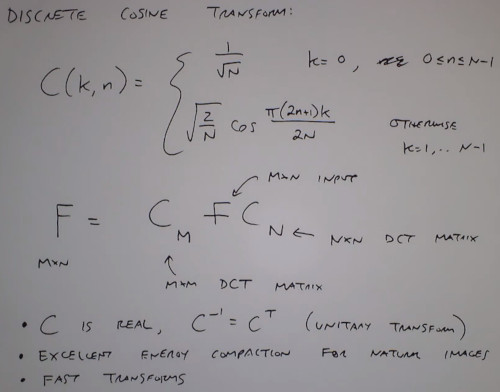 DISCRETE COSINE TRANSFORM:
C(k,n) = { 1/√N k=0, 0≤n≤N-1
√(2/N) cos π(2n+1)k/2N OTHERWISE
k=1,.. N-1
MxN INPUT
F = C_M F C_N ← NxN DCT MATRIX
MxN
MxM DCT MATRIX
• C IS REAL, C⁻¹ = Cᵀ (UNITARY TRANSFORM)
• EXCELLENT ENERGY COMPACTION FOR NATURAL IMAGES
• FAST TRANSFORMS